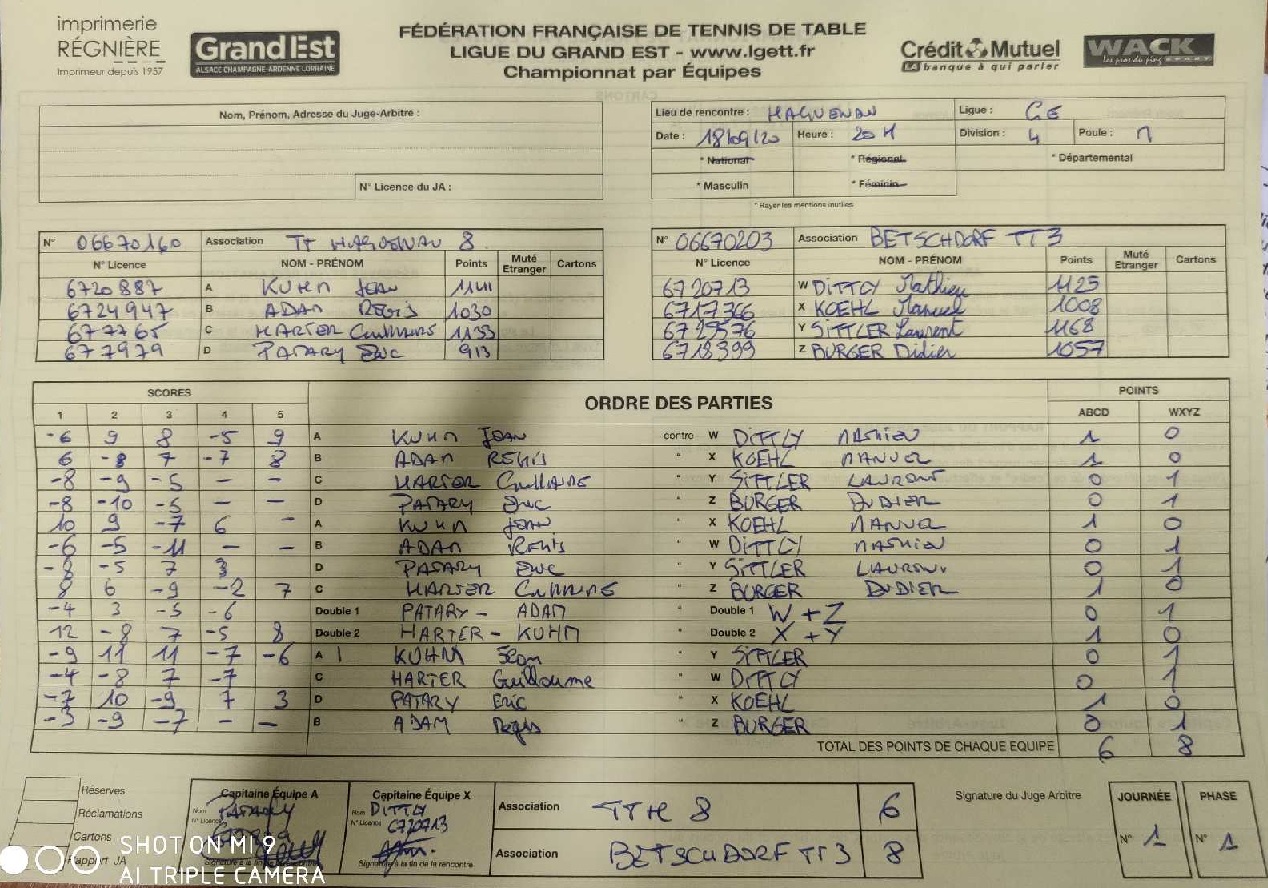 imprimerie
RÉGNIÈRE
Imprimeur depuis 1957
GrandEst
ALSACE CHAMPAGNE-ARDENNE LORRAINE
FÉDÉRATION FRANÇAISE DE TENNIS DE TABLE
LIGUE DU GRAND EST - www.lgett.fr
Championnat par Équipes
Crédit Mutuel
LA banque à qui parler
WACK
les pros du ping SPORT
Nom, Prénom, Adresse du Juge-Arbitre :
N° Licence du JA :
Lieu de rencontre : HAGUENAU Ligue : GE
Date : 18/09/20 Heure : 20H Division : 4 Poule :
* National * Régional * Départemental
* Masculin * Féminin
* Rayer les mentions inutiles
N° 06670160 Association TT HAGUENAU 8
N° Licence NOM - PRÉNOM Points Muté Etranger Cartons
6720887 A KUHN JEAN 1141
6724947 B ADAM REGIS 1030
677765 C HARTER Guillaume 1133
677979 D PATARY Eric 913
N° 06670203 Association BETSCHDORF TT 3
N° Licence NOM - PRÉNOM Points Muté Etranger Cartons
6720713 W DITTLY Mathieu 1125
6717366 X KOEHL Manuel 1008
6725576 Y SITTLER Laurent 1168
6718399 Z BURGER Didier 1057
SCORES ORDRE DES PARTIES POINTS
1 2 3 4 5 ABCD WXYZ
-6 9 8 -5 9 A KUHN JEAN contre W DITTLY MATHIEU 1 0
6 -8 7 -7 8 B ADAM REGIS " X KOEHL MANUEL 1 0
-8 -9 -5 - - C HARTER GUILLAUME " Y SITTLER LAURENT 0 1
-8 -10 -5 - - D PATARY Eric " Z BURGER DIDIER 0 1
10 9 -7 6 - A KUHN JEAN " X KOEHL MANUEL 1 0
-6 -5 -11 - - B ADAM REGIS " W DITTLY MATHIEU 0 1
-5 7 D PATARY Eric " Y SITTLER LAURENT 0 1
8 6 -9 -2 7 C HARTER GUILLAUME " Z BURGER DIDIER 1 0
-4 3 -5 -6 Double 1 PATARY - ADAM " Double 1 W + Z 0 1
12 -8 7 -5 8 Double 2 HARTER - KUHN " Double 2 X + Y 1 0
-9 11 11 -7 -6 A KUHN Jean " Y SITTLER 0 1
-4 -8 7 -7 C HARTER Guillaume " W DITTLY 0 1
-7 10 -9 7 3 D PATARY Eric " X KOEHL 1 0
-3 -9 -7 - - B ADAM Regis " Z BURGER 0 1
TOTAL DES POINTS DE CHAQUE EQUIPE 6 8
Réserves
Réclamations
Cartons
Rapport JA
Capitaine Équipe A
Nom PATARY
N° Licence
Capitaine Équipe X
Nom DITTLY
N° Licence 6720713
Signature à la fin de la rencontre
Association TTH 8 6
Association BETSCHDORF TT 3 8
Signature du Juge Arbitre
JOURNÉE
N° 1
PHASE
N° 1
SHOT ON MI 9
AI TRIPLE CAMERA